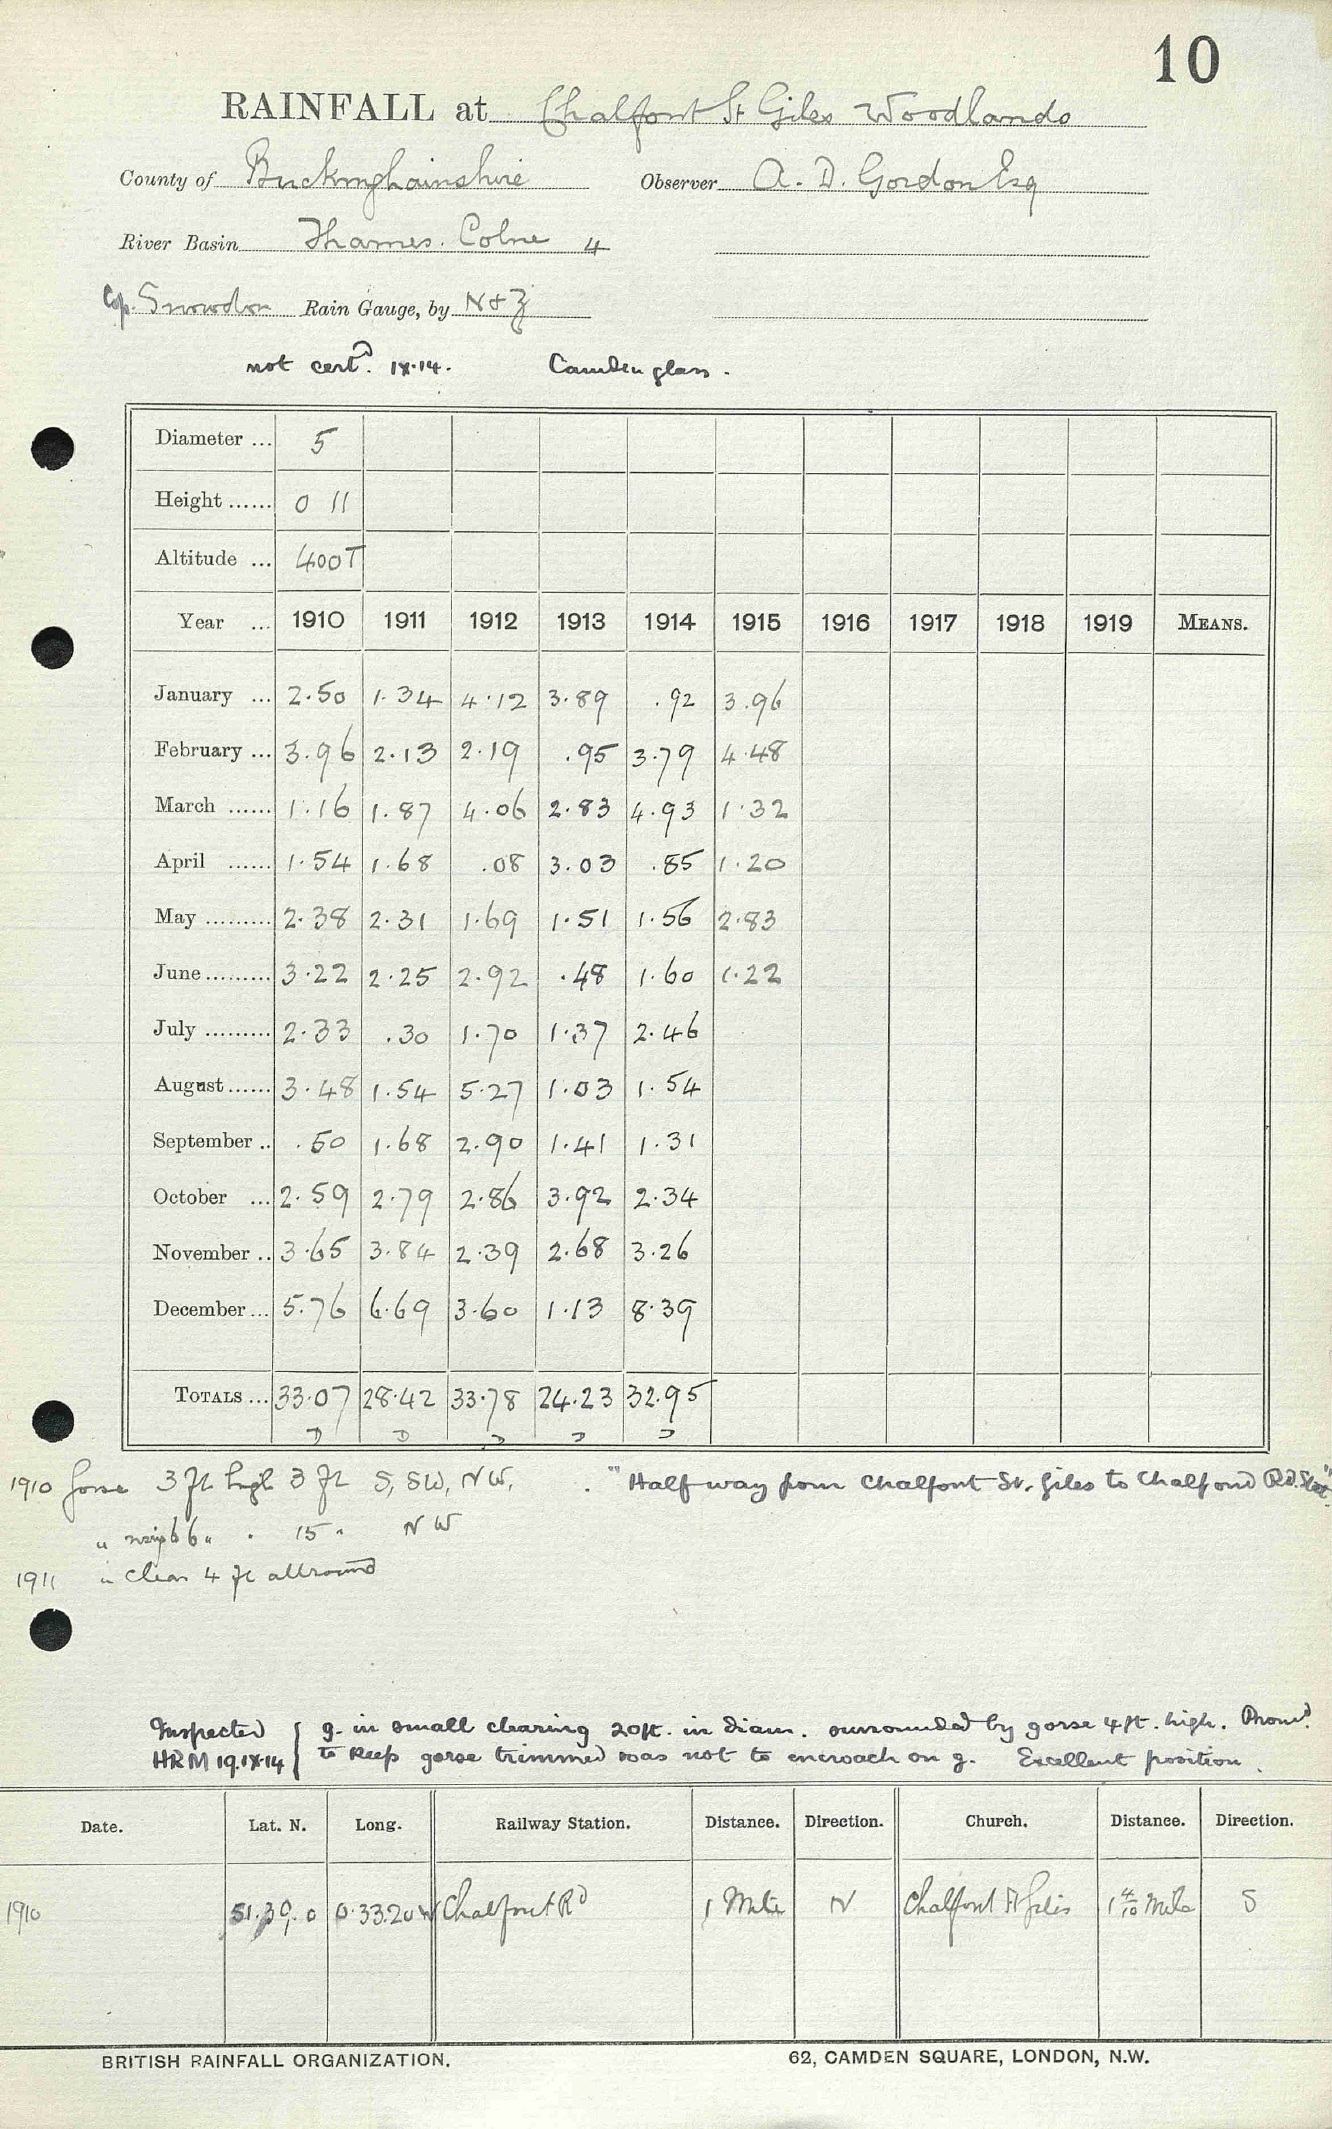 10
RAINFALL at Chalfont St Giles Woodlands
County of Buckinghamshire Observer A. D. Gordon Esq
River Basin Thames. Colne 4
Cop. Snowdon Rain Gauge, by N & Z
not certd. IX.14. Camden glass.
Diameter ... 5
Height ...... 0 11
Altitude ... 400T
Year ... 1910 1911 1912 1913 1914 1915 1916 1917 1918 1919 MEANS.
January ... 2.50 1.34 4.12 3.89 .92 3.96
February ... 3.96 2.13 2.19 .95 3.79 4.48
March ...... 1.16 1.87 4.06 2.83 4.93 1.32
April ...... 1.54 1.68 .08 3.03 .85 1.20
May ......... 2.38 2.31 1.69 1.51 1.56 2.83
June ......... 3.22 2.25 2.92 .48 1.60 1.22
July ......... 2.33 .30 1.70 1.37 2.46
August ...... 3.48 1.54 5.27 1.03 1.54
September .. .50 1.68 2.90 1.41 1.31
October ... 2.59 2.79 2.86 3.92 2.34
November .. 3.65 3.84 2.39 2.68 3.26
December ... 5.76 6.69 3.60 1.13 8.39
TOTALS ... 33.07 28.42 33.78 24.23 32.95
1910 Gorse 3 ft high 3 ft S, SW, NW. "Half way from Chalfont St. Giles to Chalfond Rd. Stat"
" 6 " " 15 " NW
1911 " clear 4 ft allround
Inspected g. in small clearing 20ft. in diam. surrounded by gorse 4 ft. high. Promd.
HRM 19.IX.14 to keep gorse trimmed so as not to encroach on g. Excellent position.
Date. Lat. N. Long. Railway Station. Distance. Direction. Church. Distance. Direction.
1910 51.39.0 0.33.20 W Chalfont Rd 1 Mile N Chalfont St Giles 1 4/10 Mile S
BRITISH RAINFALL ORGANIZATION. 62, CAMDEN SQUARE, LONDON, N.W.